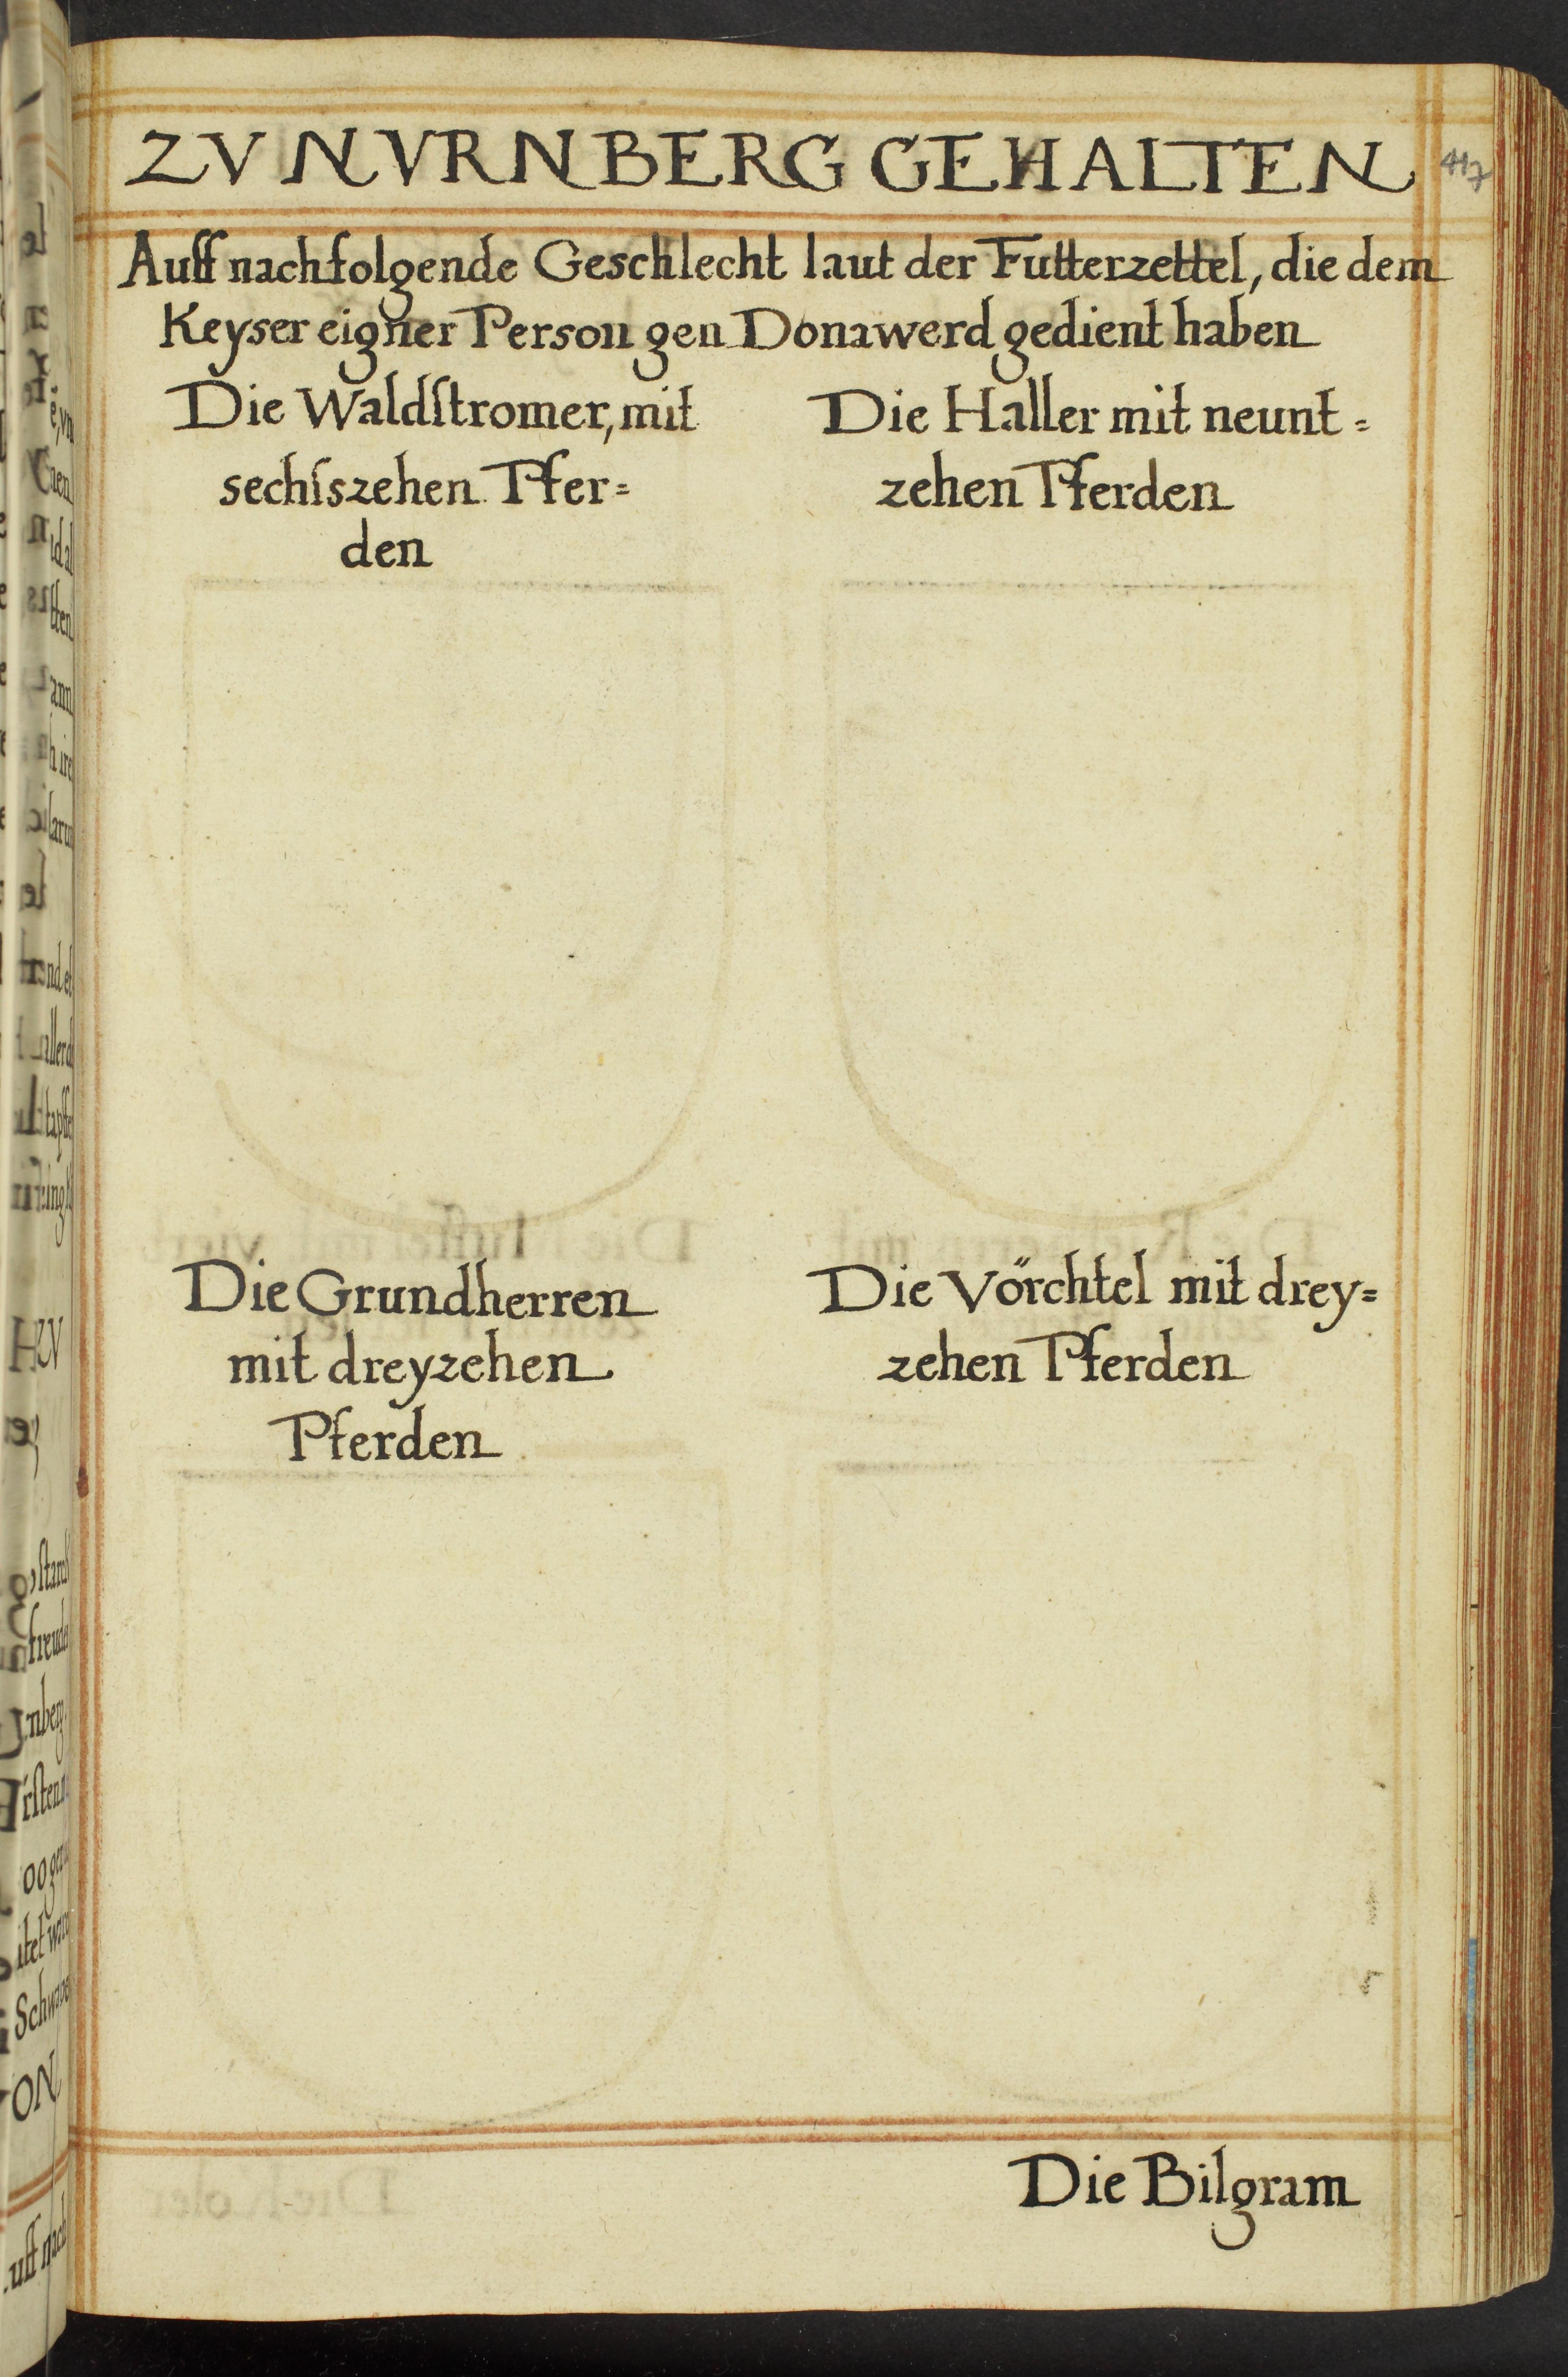 ZV NVRNBERG GEHALTEN
417
Auff nachfolgende Geschlecht laut der Futterzettel, die dem
Keyser eigner Person gen Donawerd gedient haben
Die Waldſtromer, mit
sechſszehen Pfer=
den
Die Haller mit neunt=
zehen Pferden
Die Grundherren
mit dreyzehen
Pferden
Die Vörchtel mit drey=
zehen Pferden
Die Bilgram